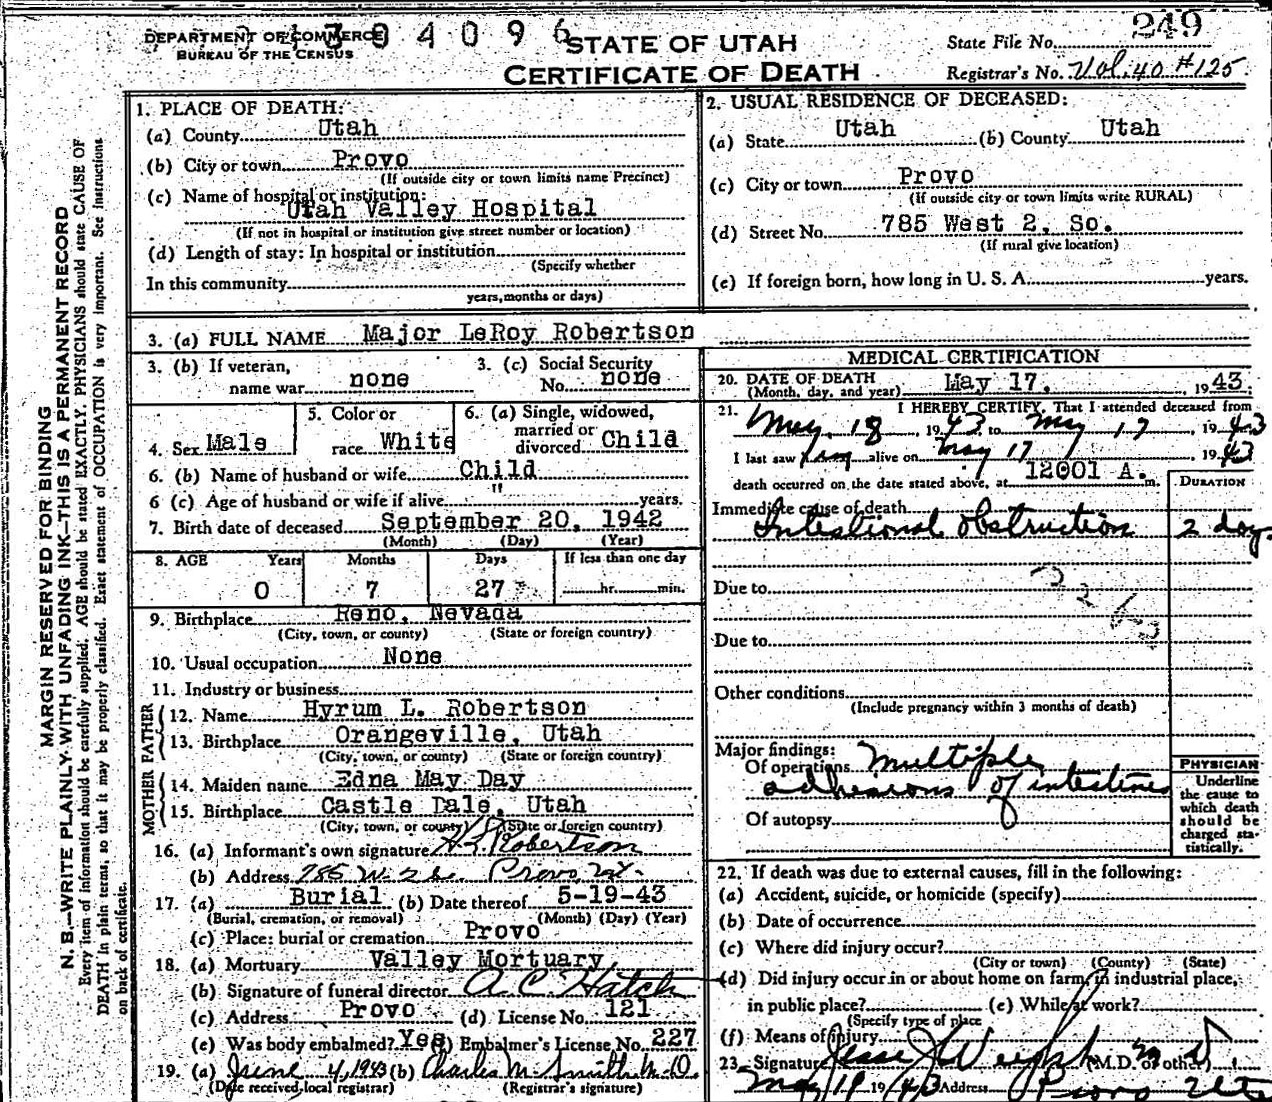 DEPARTMENT OF COMMERCE
BUREAU OF THE CENSUS
4 3 0 4 0 9 6
STATE OF UTAH
CERTIFICATE OF DEATH
249
State File No.
Registrar's No. Vol. 40 #125
MARGIN RESERVED FOR BINDING
N. B.—WRITE PLAINLY WITH UNFADING INK—THIS IS A PERMANENT RECORD
Every item of information should be carefully supplied. AGE should be stated EXACTLY. PHYSICIANS should state CAUSE OF
DEATH in plain terms, so that it may be properly classified. Exact statement of OCCUPATION is very important. See instructions
on back of certificate.
1. PLACE OF DEATH:
(a) County Utah
(b) City or town Provo
(If outside city or town limits name Precinct)
(c) Name of hospital or institution:
Utah Valley Hospital
(If not in hospital or institution give street number or location)
(d) Length of stay: In hospital or institution
(Specify whether
In this community
years, months or days)
2. USUAL RESIDENCE OF DECEASED:
(a) State Utah (b) County Utah
(c) City or town Provo
(If outside city or town limits write RURAL)
(d) Street No. 785 West 2, So.
(If rural give location)
(e) If foreign born, how long in U. S. A. years.
3. (a) FULL NAME Major LeRoy Robertson
3. (b) If veteran, name war none
3. (c) Social Security No. none
4. Sex Male
5. Color or race White
6. (a) Single, widowed, married or divorced Child
6. (b) Name of husband or wife Child
6 (c) Age of husband or wife if alive " years.
7. Birth date of deceased September 20, 1942
(Month) (Day) (Year)
8. AGE Years Months Days If less than one day
0 7 27 hr. min.
9. Birthplace Reno, Nevada
(City, town, or county) (State or foreign country)
10. Usual occupation None
11. Industry or business
FATHER
12. Name Hyrum L. Robertson
13. Birthplace Orangeville, Utah
(City, town, or county) (State or foreign country)
MOTHER
14. Maiden name Edna May Day
15. Birthplace Castle Dale, Utah
(City, town, or county) (State or foreign country)
16. (a) Informant's own signature H L Robertson
(b) Address 785 W. 2 So. Provo Ut.
17. (a) Burial (b) Date thereof 5-19-43
(Burial, cremation, or removal) (Month) (Day) (Year)
(c) Place: burial or cremation Provo
18. (a) Mortuary Valley Mortuary
(b) Signature of funeral director A. C. Hatch
(c) Address Provo (d) License No. 121
(e) Was body embalmed? Yes (f) Embalmer's License No. 227
19. (a) June 4, 1943 (b) Charles M. Smith M.D.
(Date received local registrar) (Registrar's signature)
MEDICAL CERTIFICATION
20. DATE OF DEATH May 17, 1943
(Month, day, and year)
21. I HEREBY CERTIFY, That I attended deceased from
May 18, 1943 to May 17, 1943
I last saw him alive on May 17 1943
death occurred on the date stated above, at 12001 A. m.
DURATION
Immediate cause of death
Intestional obstruction 2 days
Due to
Due to
Other conditions
(Include pregnancy within 3 months of death)
Major findings:
Of operations Multiple
adhesions of intestines
Of autopsy
PHYSICIAN
Underline
the cause to
which death
should be
charged sta-
tistically.
22. If death was due to external causes, fill in the following:
(a) Accident, suicide, or homicide (specify)
(b) Date of occurrence
(c) Where did injury occur?
(City or town) (County) (State)
(d) Did injury occur in or about home on farm, in industrial place,
in public place? (e) While at work?
(Specify type of place
(f) Means of injury
23. Signature Jesse J Weight M.D. (M.D. or other)
May 19 1943 Address Provo Utah